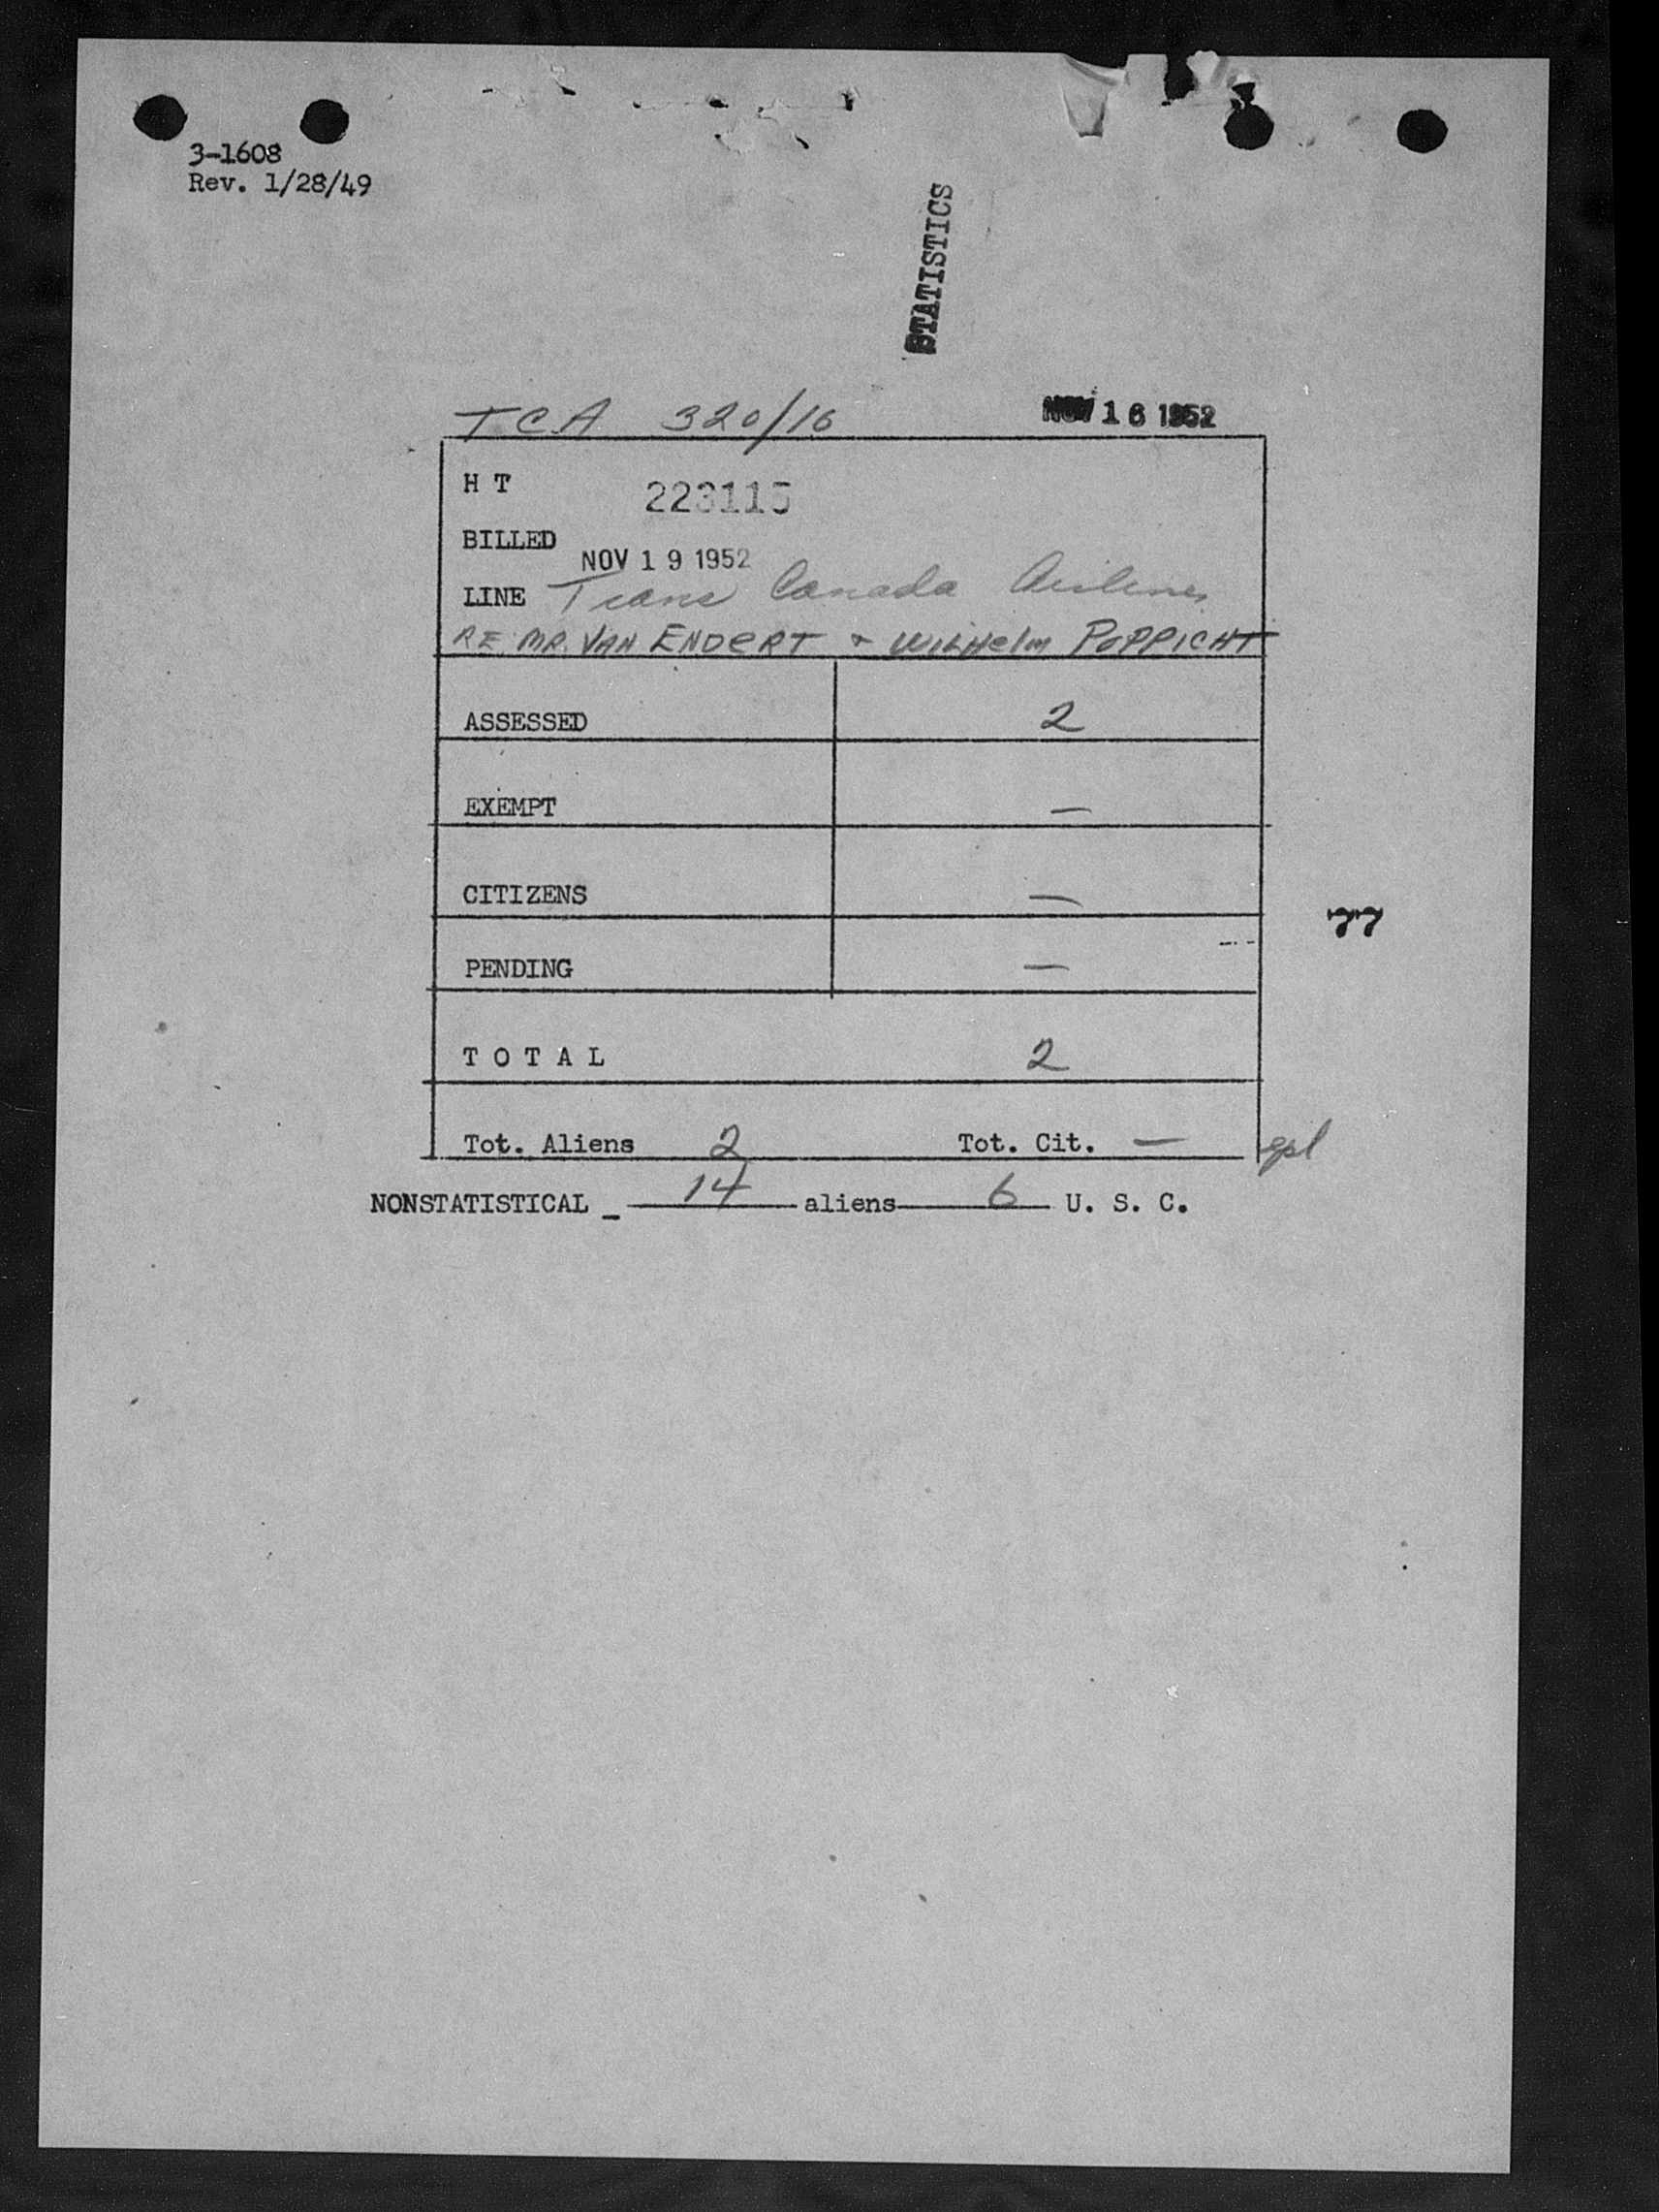 3-1608
Rev. 1/28/49
STATISTICS
TCA 320/16 NOV 16 1952
H T 223115
BILLED NOV 19 1952
LINE Trans Canada Airlines
RE MR. VAN ENDERT & WILHelm POPPICHT
ASSESSED 2
EXEMPT —
CITIZENS —
77
PENDING —
T O T A L 2
Tot. Aliens 2 Tot. Cit. — gpl
NONSTATISTICAL _ 14 aliens 6 U. S. C.